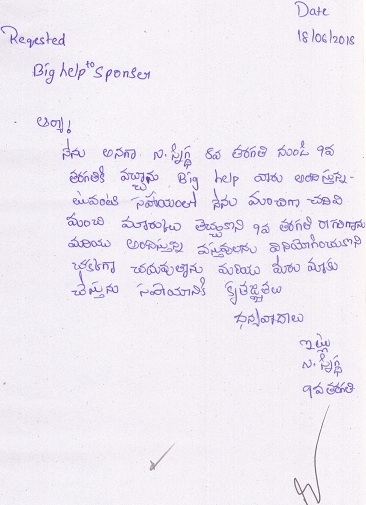 Date
Requested
18/06/2018
Big help to Sponser
ఆర్యా!
నేను అనగా N. స్నిగ్ధ 8వ తరగతి నుండి 9వ
తరగతికి వచ్చాను. Big help వారు అందిస్తున్న-
టువంటి సహాయంతో నేను మంచిగా చదివి
మంచి మార్కులు తెచ్చుకొని 9వ తరగతి
మరియు అందిస్తున్న వస్తువులను వినియోగించుకొని
చక్కగా చదువుతాను మరియు మీరు మాకు
చేస్తును సహాయానికి కృతజ్ఞతలు
ధన్యవాదాలు
ఇట్లు
N. స్నిగ్ధ
9వ తరగతి